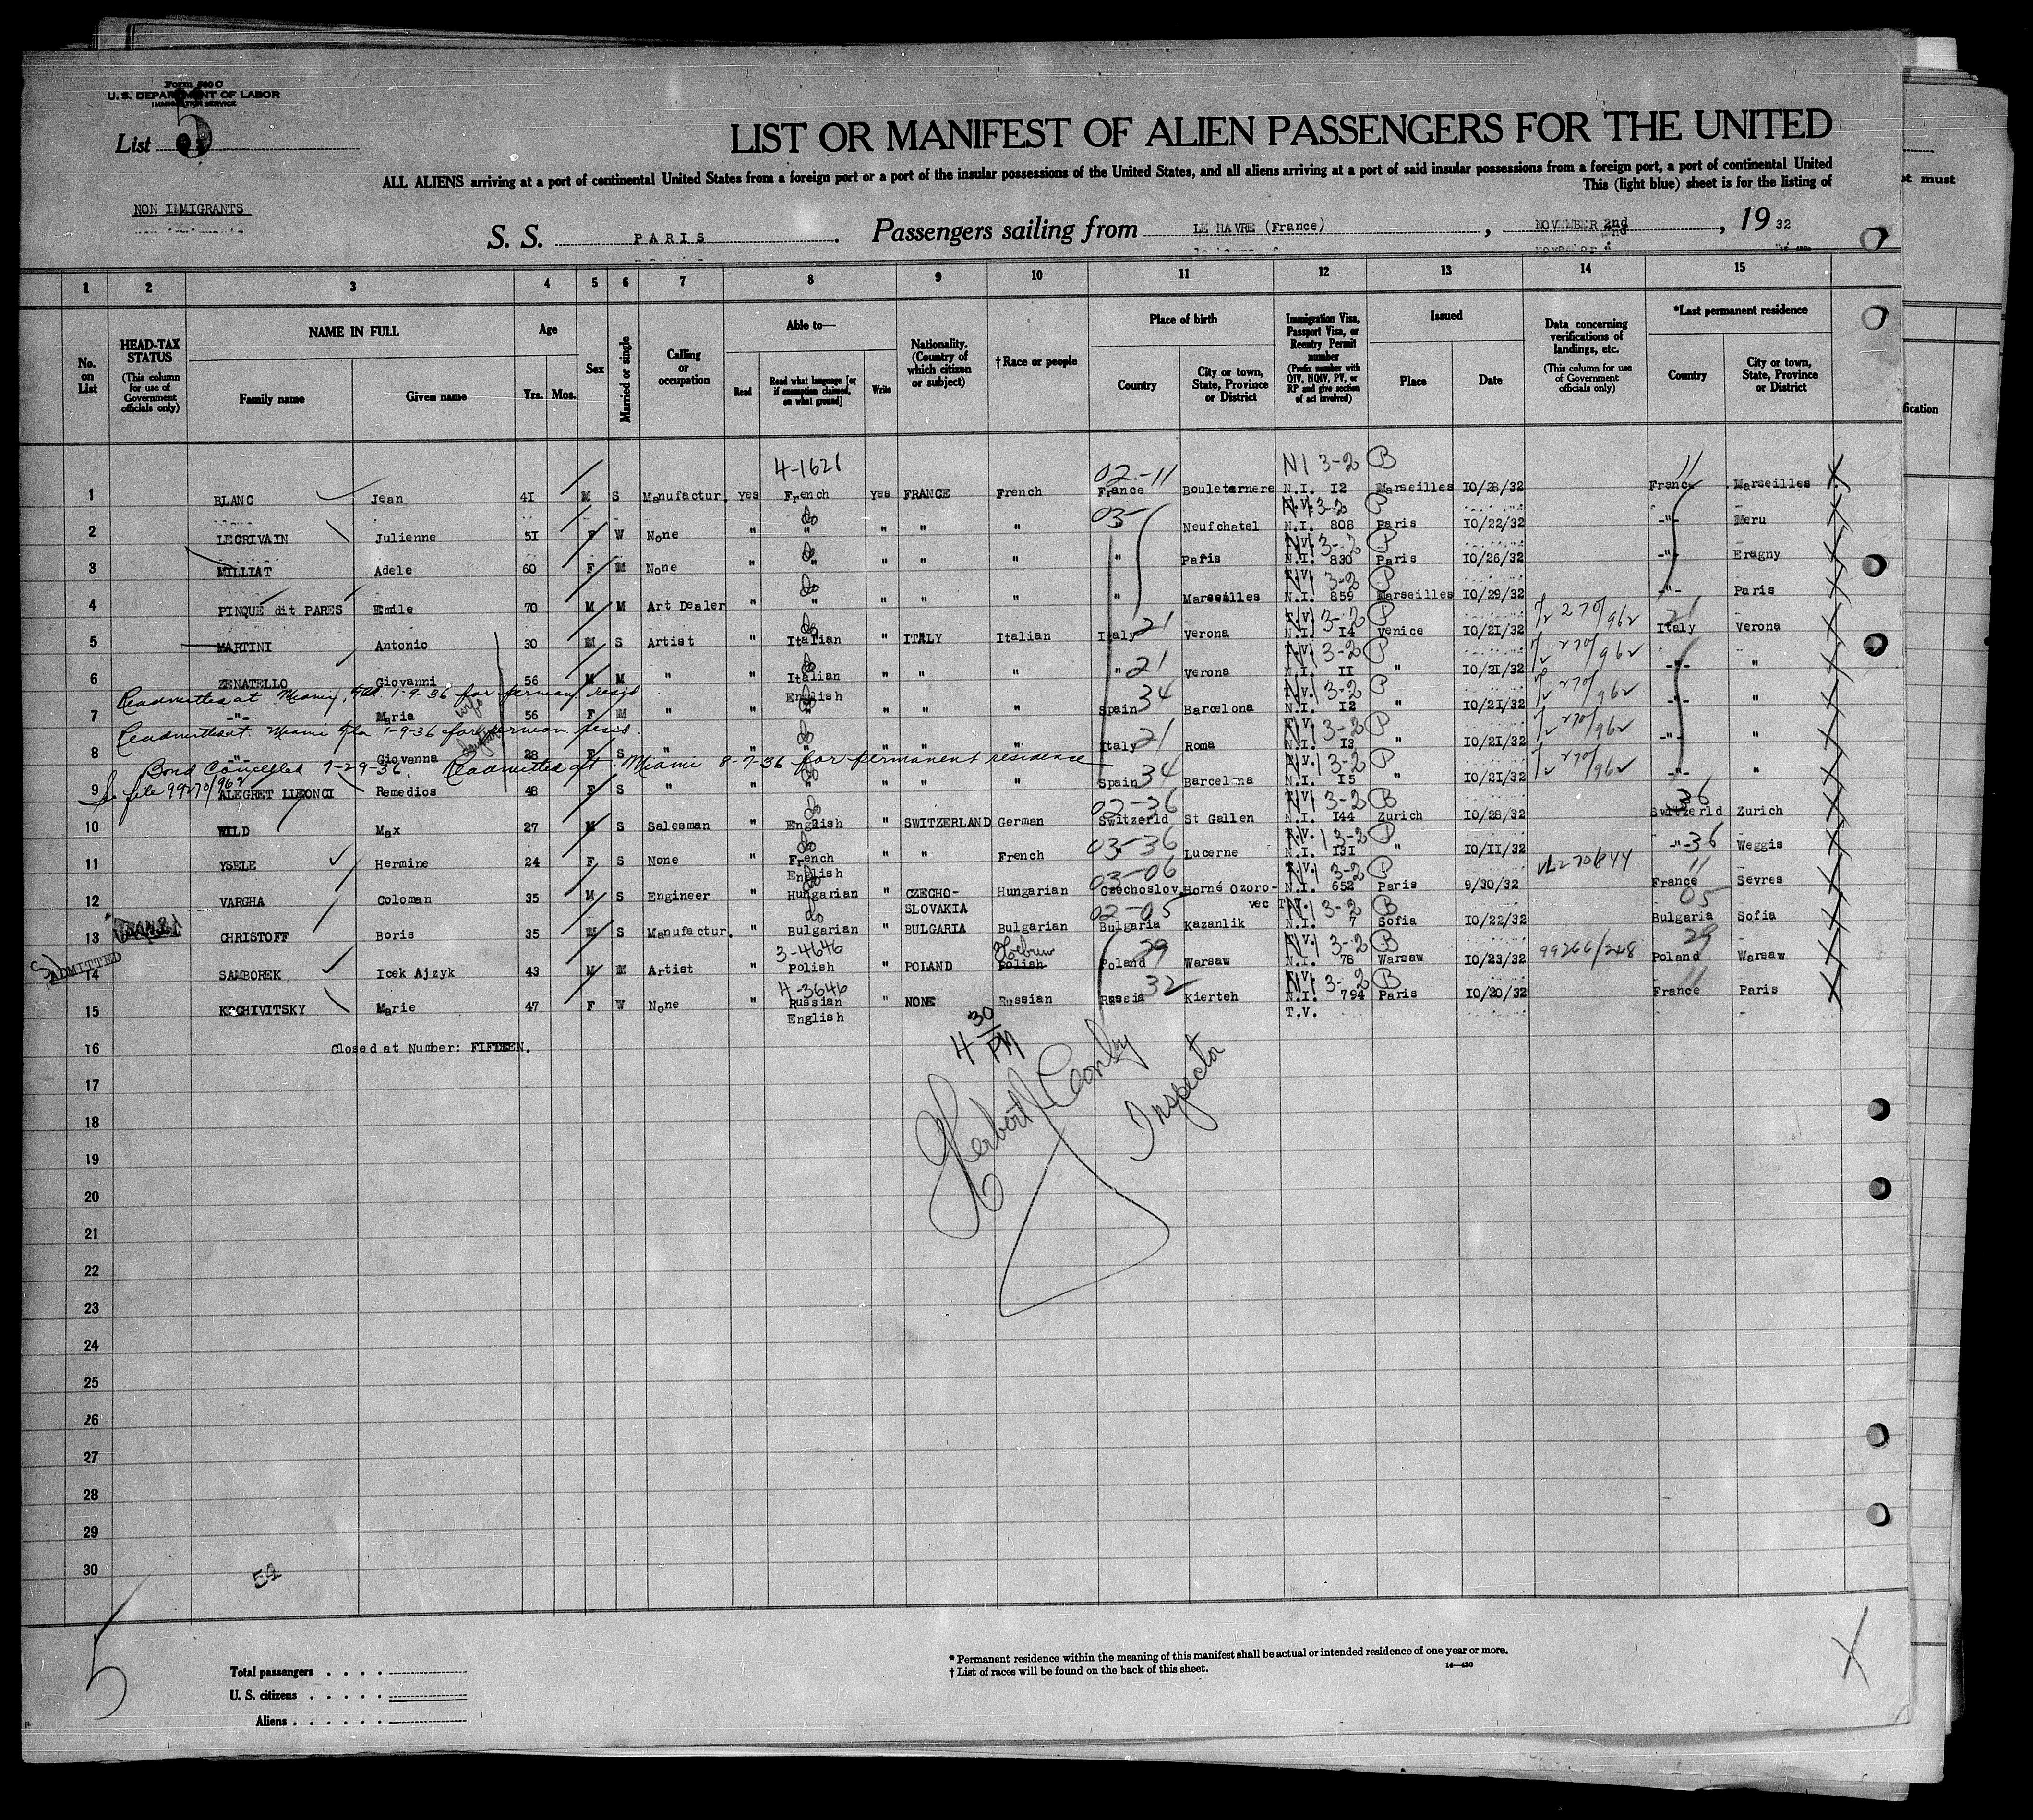 Form 500 C
U. S. DEPARTMENT OF LABOR
IMMIGRATION SERVICE
List 5
LIST OR MANIFEST OF ALIEN PASSENGERS FOR THE UNITED
ALL ALIENS arriving at a port of continental United States from a foreign port or a port of the insular possessions of the United States, and all aliens arriving at a port of said insular possessions from a foreign port, a port of continental United
This (light blue) sheet is for the listing of
ot must
NON IMMIGRANTS
S. S. PARIS. Passengers sailing from LE HAVRE (France), NOVEMBER 2nd, 19 32
1 2 3 4 5 6 7 8 9 10 11 12 13 14 15
No. on List
HEAD-TAX STATUS (This column for use of Government officials only)
NAME IN FULL Family name Given name
Age Yrs. Mos.
Sex
Married or single
Calling or occupation
Able to— Read Read what language [or if exemption claimed, on what ground] Write
Nationality. (Country of which citizen or subject)
†Race or people
Place of birth Country City or town, State, Province or District
Immigration Visa, Passport Visa, or Reentry Permit number (Prefix number with QIV, NQIV, PV, or RP and give section of act involved)
Issued Place Date
Data concerning verifications of landings, etc. (This column for use of Government officials only)
*Last permanent residence Country City or town, State, Province or District
fication
4-1621 02-11 NI 3-2 B 11
1 BLANC Jean 41 M S Manufactur. yes French yes FRANCE French France Bouleternere N.I. 12 Marseilles 10/28/32 France Marseilles
2 LECRIVAIN Julienne 51 F W None " " " " " 03- Neufchatel N.I. 808 Paris 10/22/32 -"- Meru
3 MILLIAT Adele 60 F M None " " " " " " Paris N.I. 830 Paris 10/26/32 -"- Eragny
4 PINQUE dit PARES Emile 70 M M Art Dealer " " " " " " Marseilles N.I. 859 Marseilles 10/29/32 -"- Paris
5 MARTINI Antonio 30 M S Artist " Italian " ITALY Italian Italy 21 Verona N.I. 14 Venice 10/21/32 270/962 Italy Verona
6 ZENATELLO Giovanni 56 M M " " Italian " " " " 21 Verona N.I. 11 " 10/21/32 270/962 -"- "
English
Readmitted at Miami, Fla. 1-9-36 for perman resid
7 -"- Maria wife 56 F M " " " " " " Spain 34 Barcelona N.I. 12 " 10/21/32 270/962 -"- "
Readmitted Miami Fla 1-9-36 for perman. resid.
8 -"- Giovanna 28 F S " " " " " " Italy 21 Roma N.I. 13 " 10/21/32 270/962 -"- "
Bond Cancelled 7-29-36. Readmitted at Miami 8-7-36 for permanent residence
file 99270/962
9 ALEGRET LLEONCI Remedios 48 F S " " " " Spain 34 Barcelona N.I. 15 " 10/21/32 270/962 -"- "
10 WILD Max 27 M S Salesman " English " SWITZERLAND German 02-36 Switzerld St Gallen N.I. 144 Zurich 10/28/32 36 Switzerld Zurich
11 YSELE Hermine 24 F S None " French " " French 03-36 " Lucerne N.I. 131 " 10/11/32 -"- 36 Weggis
English
12 VARGHA Coloman 35 M S Engineer " Hungarian " CZECHO-SLOVAKIA Hungarian 03-06 Czechoslov. Horné Ozoro-vec N.I. 652 Paris 9/30/32 France 11 Sevres
13 CHRISTOFF Boris 35 M S Manufactur. " Bulgarian " BULGARIA Bulgarian 02-05 Bulgaria Kazanlik N.I. 7 Sofia 10/22/32 05 Bulgaria Sofia
ADMITTED 3-4646 Hebrew
14 SAMBOREK Icek Ajzyk 43 M M Artist " Polish " POLAND Polish Poland 29 Warsaw N.I. 78 Warsaw 10/23/32 99266/248 29 Poland Warsaw
4-3646
15 KOCHIVITSKY Marie 47 F W None " Russian " NONE Russian Russia 32 Kierteh N.I. 794 Paris 10/20/32 11 France Paris
English T.V.
16 Closed at Number: FIFTEEN.
4 30 PM
Inspector
17
18
19
20
21
22
23
24
25
26
27
28
29
30
52
5
Total passengers
U. S. citizens
Aliens
* Permanent residence within the meaning of this manifest shall be actual or intended residence of one year or more.
† List of races will be found on the back of this sheet. 14—430